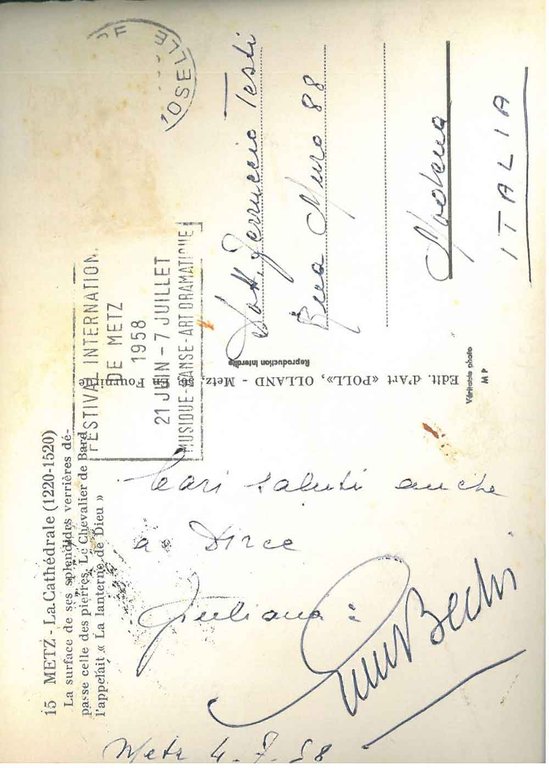 15 METZ - La Cathédrale (1220-1520)
La surface de ses splendides verrières dé-
passe celle des pierres. Le Chevalier de Bard
l'appelait « La lanterne de Dieu »
FESTIVAL INTERNATION.
DE METZ
1958
21 JUIN - 7 JUILLET
MUSIQUE-DANSE-ART DRAMATIQUE
MOSELLE
Dott. Ferruccio Testi
Rua Muro 88
Modena
ITALIA
Edit. d'Art « POLL », OLLAND - Metz,
Reproduction interdite
Véritable photo
M P
Cari saluti anche
a Dirce
Giuliana:
Bechi
Metz 4.7.58